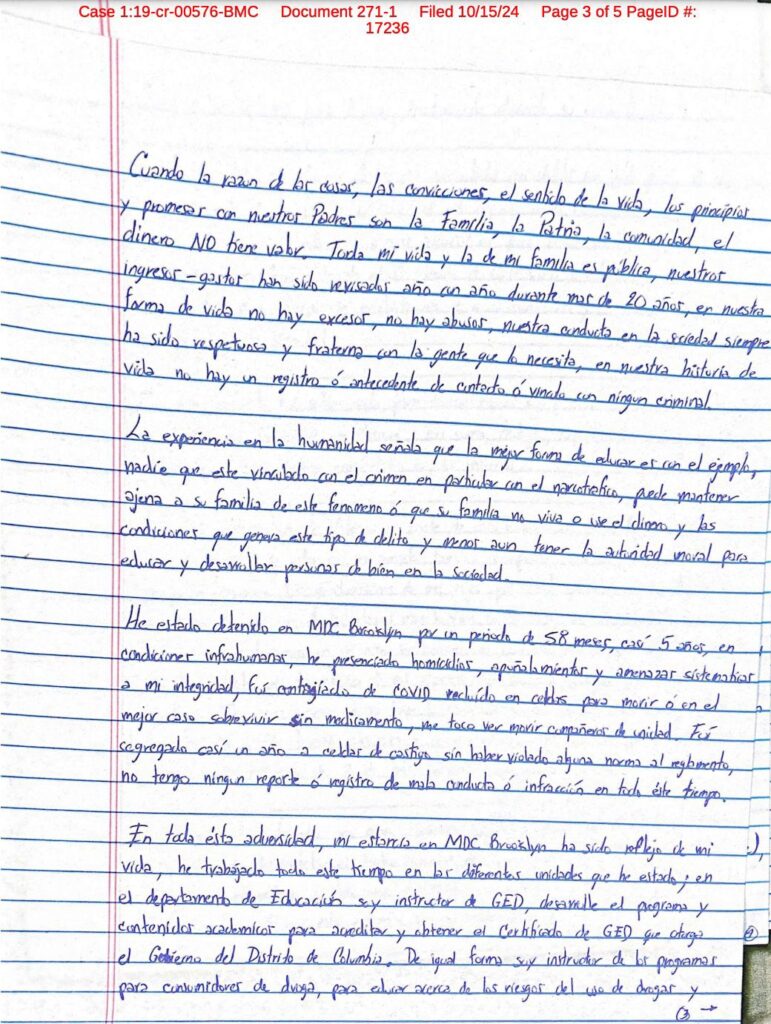 Case 1:19-cr-00576-BMC Document 271-1 Filed 10/15/24 Page 3 of 5 PageID #:
17236
Cuando la razon de las cosas, las convicciones, el sentido de la vida, los principios
y promesas con nuestros Padres son la Familia, la Patria, la comunidad, el
dinero NO tiene valor. Toda mi vida y la de mi familia es pública, nuestros
ingresos-gastos han sido revisados año con año durante mas de 20 años, en nuestra
forma de vida no hay excesos, no hay abusos, nuestra conducta en la sociedad siempre
ha sido respetuosa y fraterna con la gente que lo necesita, en nuestra historia de
vida no hay un registro ó antecedente de contacto ó vinculo con ningun criminal.
La experiencia en la humanidad señala que la mejor forma de educar es con el ejemplo,
nadie que este vinculado con el crimen en particular con el narcotrafico, puede mantener
ajena a su familia de este fenomeno ó que su familia no viva o use el dinero y las
condiciones que genera este tipo de delito y menos aun tener la autoridad moral para
educar y desarrollar personas de bien en la sociedad.
He estado detenido en MDC Brooklyn por un periodo de 58 meses, casí 5 años, en
condiciones infrahumanas, he presenciado homicidios, apuñalamientos y amenazas sistematicas
a mi integridad, fuí contagiado de COVID recluído en celdas para morir ó en el
mejor caso sobrevivir sin medicamento, me toco ver morir compañeros de unidad. Fuí
segregado casí un año a celdas de castigo sin haber violado alguna norma al reglamento,
no tengo ningun reporte ó registro de mala conducta ó infracción en todo éste tiempo.
En toda ésta adversidad, mi estancia en MDC Brooklyn ha sido reflejo de mi
vida, he trabajado todo este tiempo en las diferentes unidades que he estado, en
el departamento de Educación soy instructor de GED, desarrolle el programa y
contenidos academicos para acreditar y obtener el Certificado de GED que otorga
el Gobierno del Distrito de Columbia. De igual forma soy instructor de los programas
para consumidores de droga, para educar acerca de los riesgos del uso de drogas y
3 →